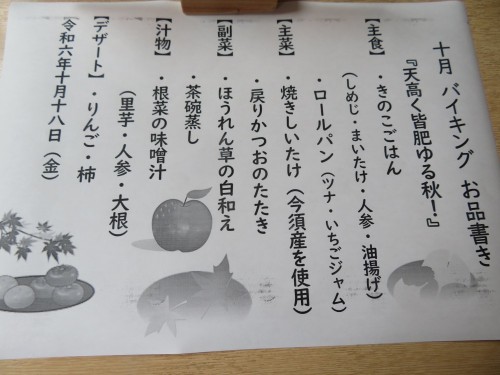 十月 バイキング お品書き
『天高く皆肥ゆる秋!』
【主食】・きのこごはん
(しめじ・まいたけ・人参・油揚げ)
・ロールパン(ツナ・いちごジャム)
【主菜】・焼きしいたけ(今須産を使用)
・戻りかつおのたたき
【副菜】・ほうれん草の白和え
・茶碗蒸し
【汁物】・根菜の味噌汁
(里芋・人参・大根)
【デザート】・りんご・柿
令和六年十月十八日(金)